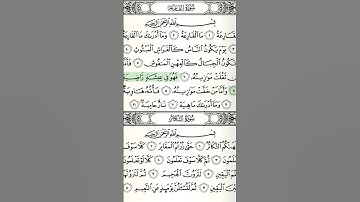 سُورَةُ القَارِعَةِ
بِسْمِ اللَّهِ الرَّحْمَٰنِ الرَّحِيمِ
قَارِعَةُ ١ مَا الْقَارِعَةُ ٢ وَمَا أَدْرَىٰكَ مَا الْقَارِعَ
يَوْمَ يَكُونُ النَّاسُ كَالْفَرَاشِ الْمَبْثُوثِ
تَكُونُ الْجِبَالُ كَالْعِهْنِ الْمَنفُوشِ
ثَقُلَتْ مَوَٰزِينُهُۥ ٦ فَهُوَ فِي عِيشَةٍ رَّاضِيَةٍ
٧ وَأَمَّا مَنْ خَفَّتْ مَوَٰزِينُهُۥ ٨ فَأُمُّهُۥ هَاوِيَةٌ
٩ وَمَا أَدْرَىٰكَ مَا هِيَهْ ١٠ نَارٌ حَامِيَةٌ ١١
سُورَةُ التَّكَاثُرِ
بِسْمِ اللَّهِ الرَّحْمَٰنِ الرَّحِيمِ
هَىٰكُمُ التَّكَاثُرُ ١ حَتَّىٰ زُرْتُمُ الْمَقَابِرَ ٢ كَلَّا سَوْفَ
ثُمَّ كَلَّا سَوْفَ تَعْلَمُونَ ٤ كَلَّا لَوْ تَعْلَمُونَ
الْيَقِينِ ٥ لَتَرَوُنَّ الْجَحِيمَ ٦ ثُمَّ لَتَرَوُنَّ
الْيَقِينِ ٧ ثُمَّ لَتُسْـَٔلُنَّ يَوْمَئِذٍ عَنِ النَّعِيمِ